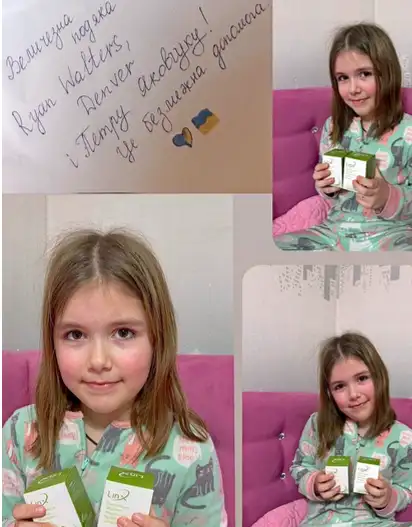 Величезна подяка
Ryan Walters,
Denver
і Петру Яковчуку!
Це безмежна допомога
Linx